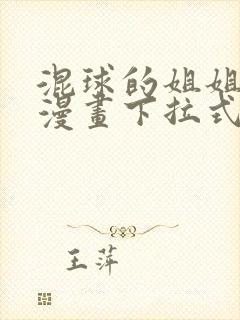 混球的姐姐
漫畫下拉式
王萍